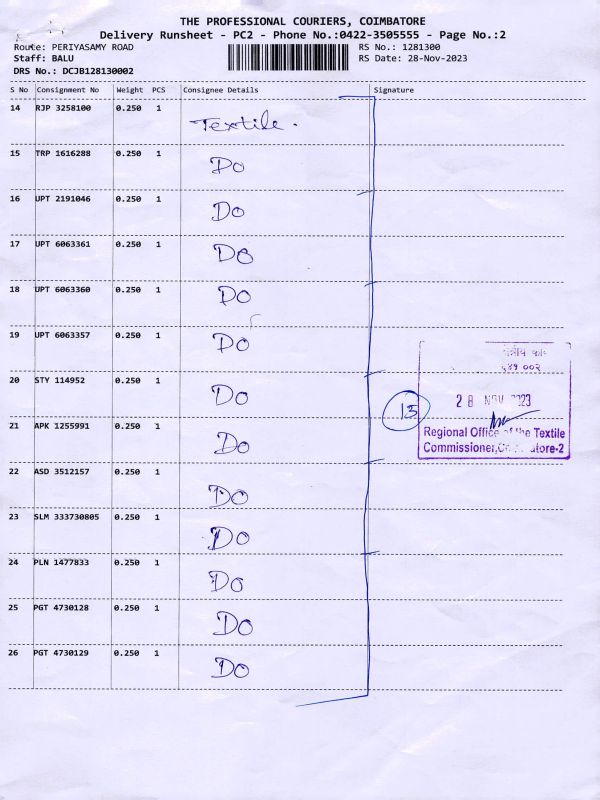 THE PROFESSIONAL COURIERS, COIMBATORE
Delivery Runsheet - PC2 - Phone No.:0422-3505555 - Page No.:2
Route: PERIYASAMY ROAD RS No.: 1281300
Staff: BALU RS Date: 28-Nov-2023
DRS No.: DCJB128130002
S No Consignment No Weight PCS Consignee Details Signature
14 RJP 3258100 0.250 1 Textile.
15 TRP 1616288 0.250 1 Do
16 UPT 2191046 0.250 1 Do
17 UPT 6063361 0.250 1 Do
18 UPT 6063360 0.250 1 Do
19 UPT 6063357 0.250 1 Do
20 STY 114952 0.250 1 Do
21 APK 1255991 0.250 1 Do
22 ASD 3512157 0.250 1 Do
23 SLM 333730805 0.250 1 Do
24 PLN 1477833 0.250 1 Do
25 PGT 4730128 0.250 1 Do
26 PGT 4730129 0.250 1 Do
13
६४१ ००२
28 NOV 2023
Regional Office of the Textile
Commissioner,